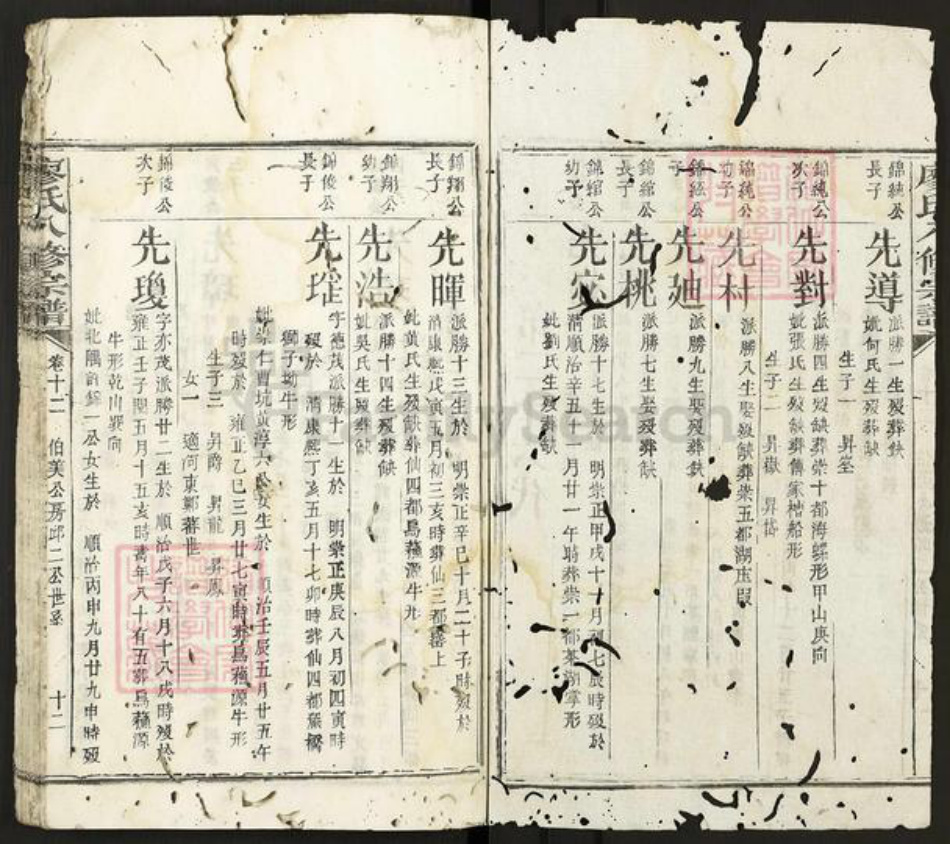 錦純公長子
先導
派勝一生歿葬缺
妣何氏生歿葬缺
生子一 昇筌
錦純公次子
先對
派勝四生歿缺葬崇十都海螺形甲山庚向
妣張氏生歿缺葬傳家楷船形
生子二 昇嶽
錦純公幼子
先村
派勝八生娶歿缺葬崇五都湖
錦紘公子
先廸
派勝九生娶歿葬缺
錦綰公長子
先桃
派勝七生娶歿葬缺
錦綰公幼子
先
派勝十七生於 明崇正甲戌十月初七辰時歿於
清順治辛丑十一月廿一午時葬崇一都
妣劉氏生歿葬缺
錦翔公長子
先暉
派勝十三生於 明崇正辛巳十月二十子時歿於
清康熙戊寅五月初三亥時葬仙三都 上
妣黃氏生歿缺葬仙四都烏蘓源牛形
錦翔公幼子
先浩
派勝十四生歿葬缺
妣吳氏生歿葬缺
錦俊公長子
先瑆
字德茂派勝十一生於 明崇正庚辰八月初四寅時
歿於 清康熙丁亥五月十七卯時葬仙四都
獅子坳牛形
妣 仁 坑黃淳六公女生於 順治壬辰五月廿五午
時歿於 雍正乙巳三月廿七寅時葬烏蘓源牛形
生子三 昇爵 昇龍 昇鳳
女一 適河東鄒蕃世
錦俊公次子
先瓊
字亦茂派勝廿二生於 順治戊子六月十八戌時歿於
雍正壬子閏五月十五亥時壽年八十有五葬烏蘓源
牛形乾山巽向
妣北隅 一公女生於 順治丙申九月廿九申時歿
廖氏八修宗譜 卷十二 伯美公房邱二公世系 十二
廖氏八修宗譜